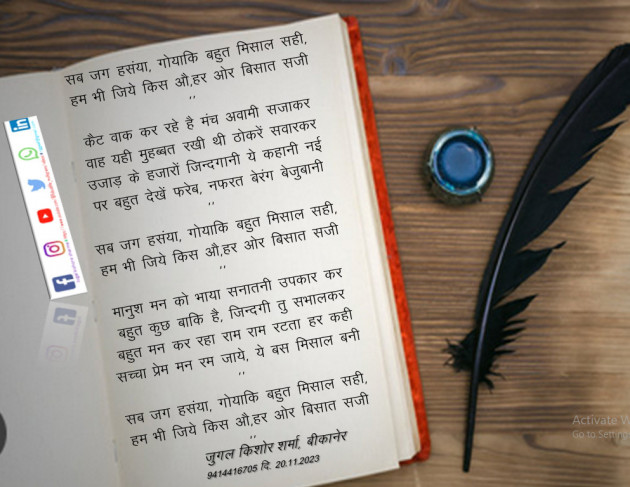 सब जग हसंया, गोयाकि बहुत मिसाल सही,
हम भी जिये किस औ,हर ओर बिसात सजी
,,
कैट वाक कर रहे है मंच अवामी सजाकर
वाह यही मुहब्बत रखी थी ठोकरें सवारकर
उजाड़ के हजारों जिन्दगानी ये कहानी नई
पर बहुत देखें फरेब, नफरत बेरंग बेजुबानी
,,
सब जग हसंया, गोयाकि बहुत मिसाल सही,
हम भी जिये किस औ,हर ओर बिसात सजी
,,
मानुश मन को भाया सनातनी उपकार कर
बहुत कुछ बाकि है, जिन्दगी तु सभालकर
बहुत मन कर रहा राम राम रटता हर कही
सच्चा प्रेम मन रम जाये, ये बस मिसाल बनी
,,
सब जग हसंया, गोयाकि बहुत मिसाल सही,
हम भी जिये किस औ,हर ओर बिसात सजी
,,
जुगल किशोर शर्मा, बीकानेर
9414416705 दि. 20.11.2023
Activate W
Go to Setting